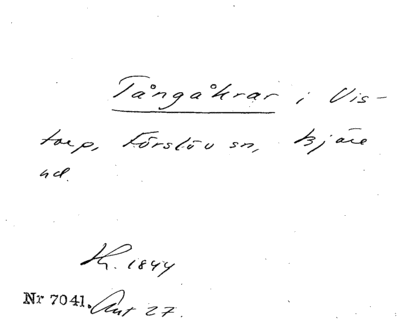 Tångåkrar i Vis-
torp, Förslöv sn, Bjäre
hd.
Kh. 1844
Nr 7041. Ant 27.